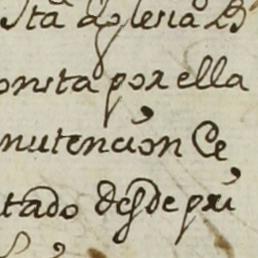 Sta Iglesia
onsta por ella
nutención Ce
tado desde pri